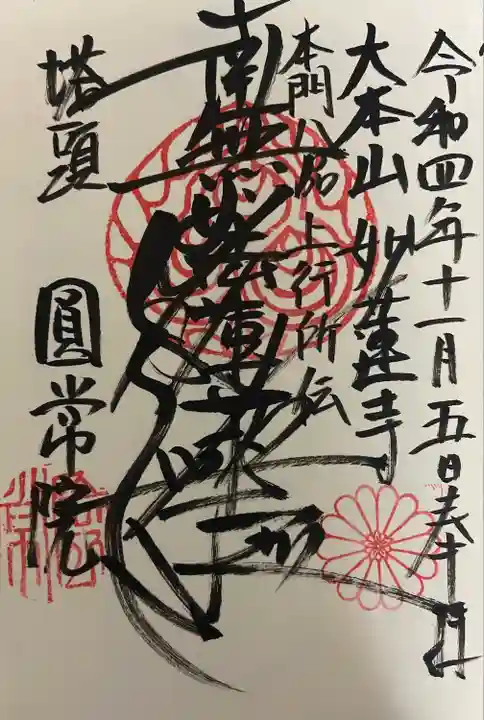 令和四年十一月五日奉拝
大本山 妙蓮寺
本門八品上行所伝
南無妙法蓮華経
塔頭 圓常院